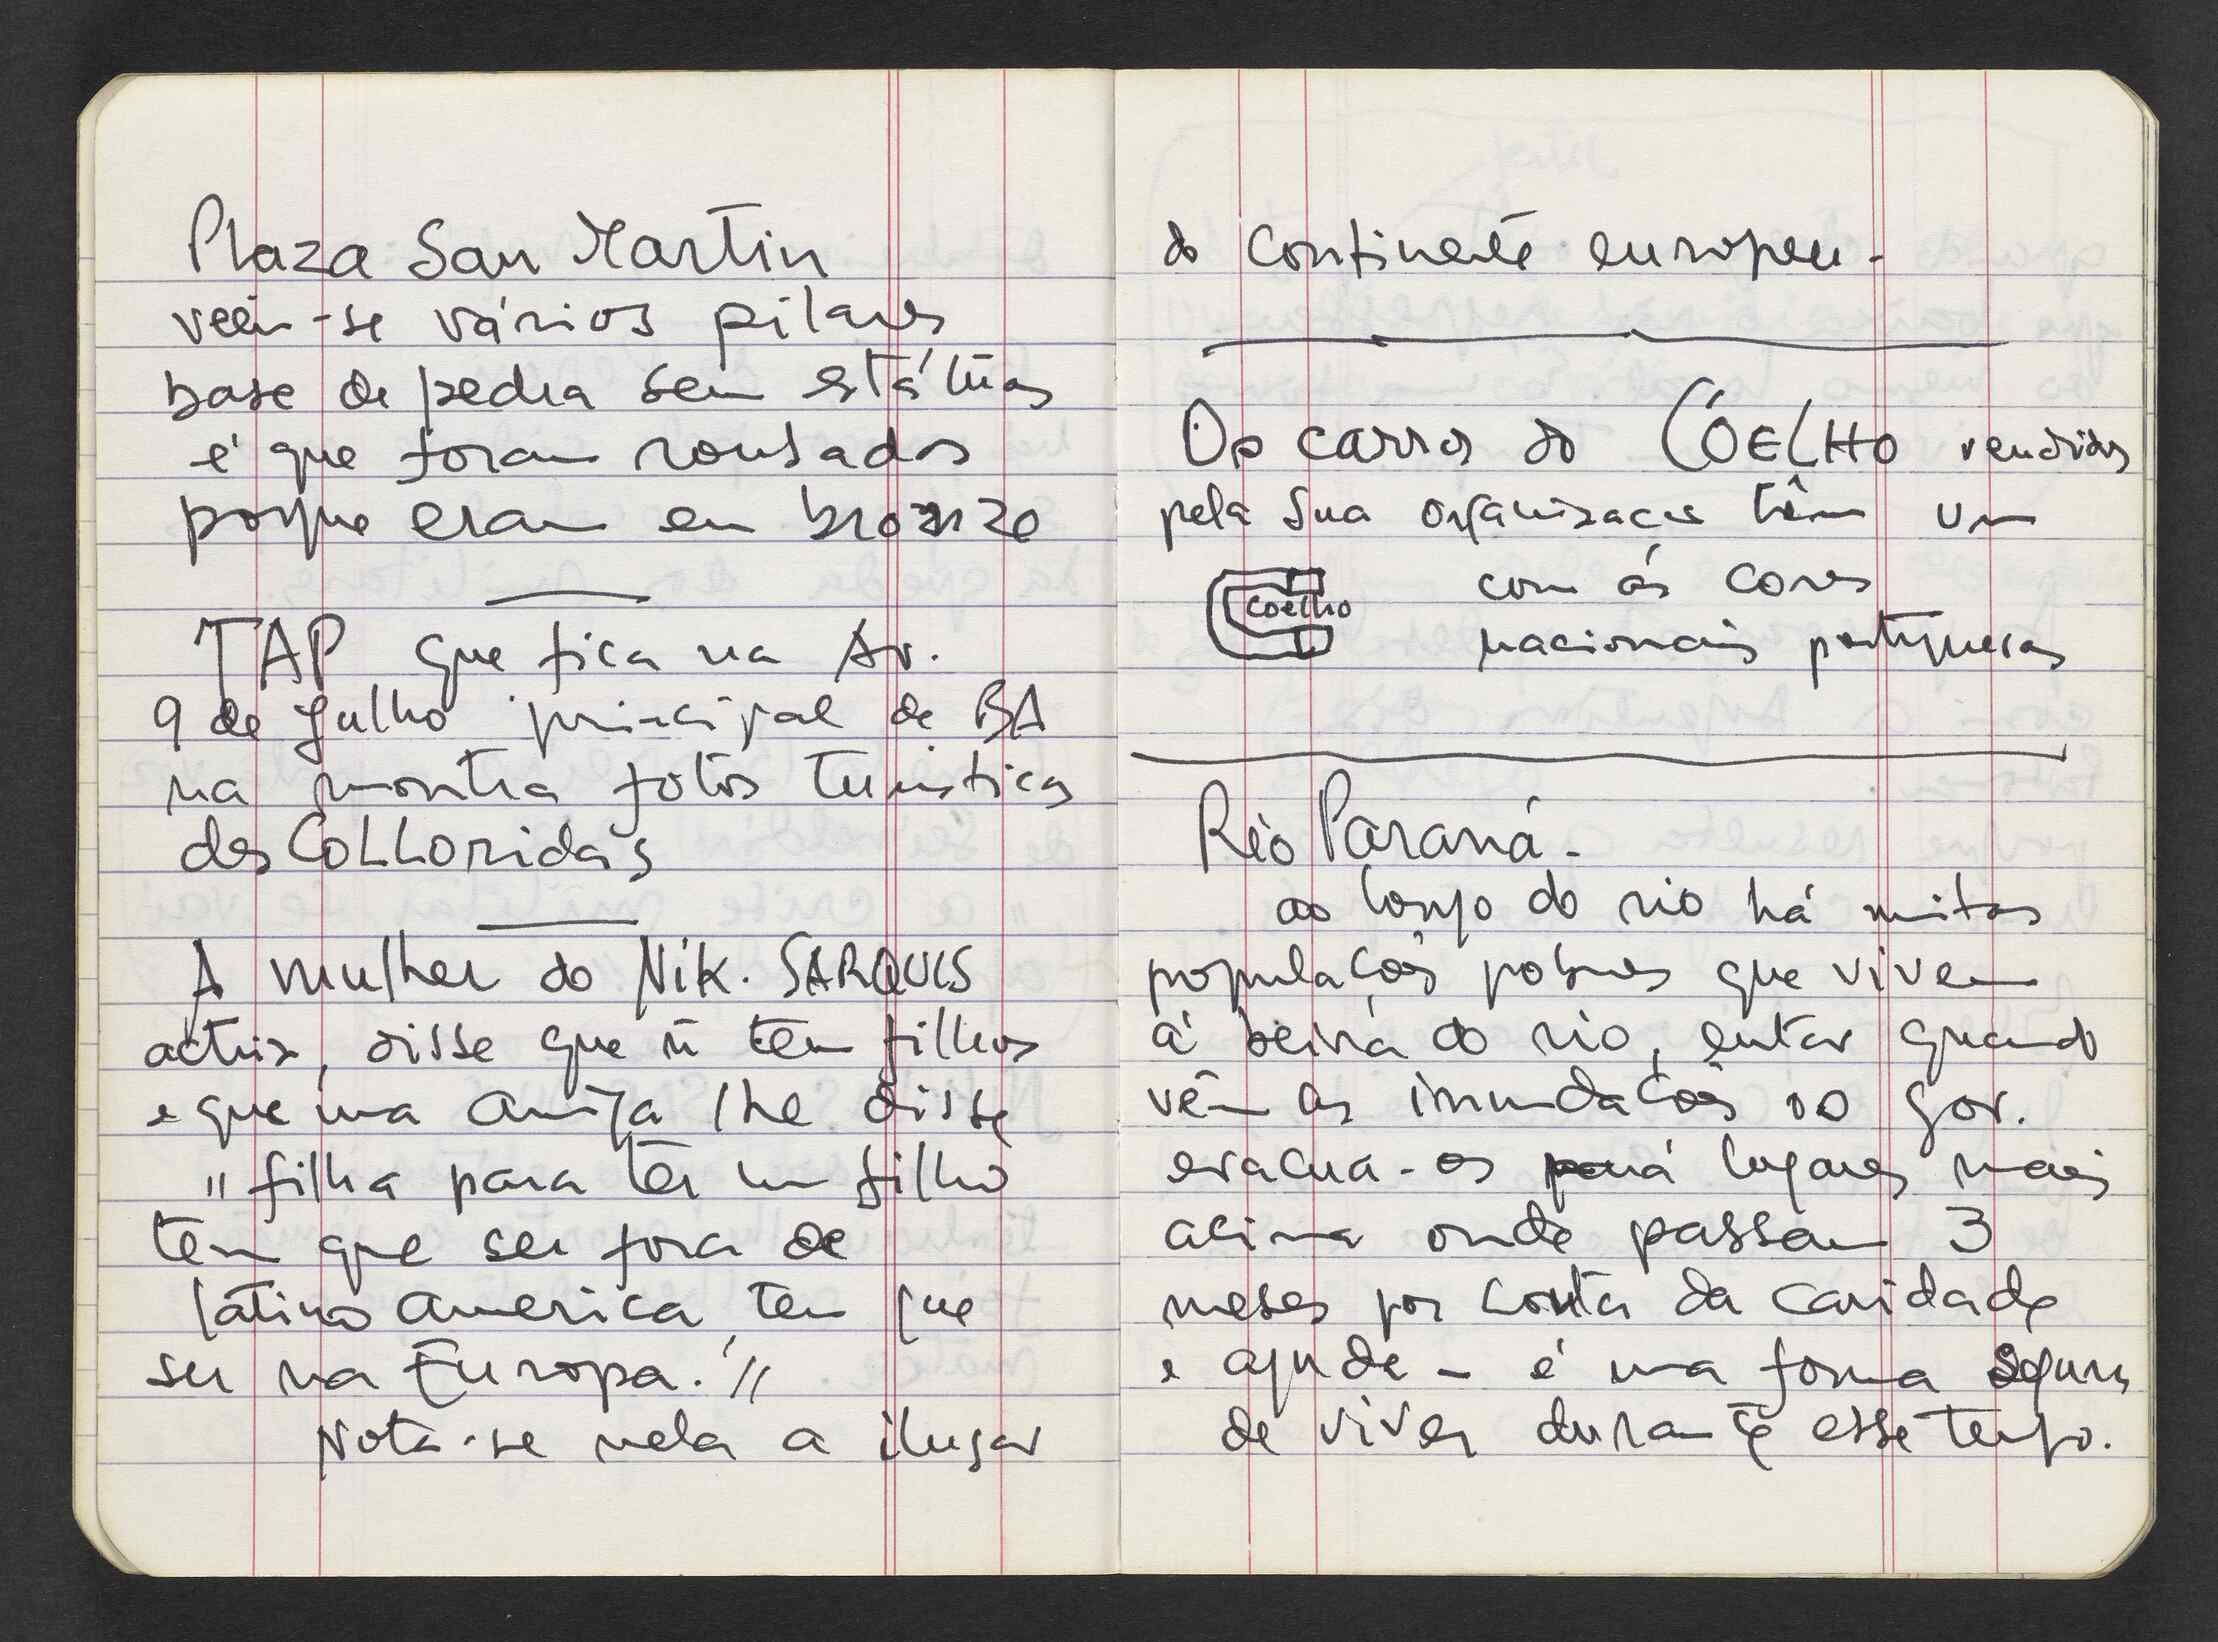 Plaza San Martin
veêm-se vários pilares
base de pedra sem estátuas
é que foram roubados
porque eram em bronze
TAP que fica na Av.
9 de Julho principal de BA
na montra fotos turisticas
des Colloridas
A mulher do Nik. SARQUIS
actriz, disse que ñ tem filhos
e que uma amiga lhe disse
"filha para ter um filho
tem que ser fora de
latino america, tem que
ser na Europa!"
Nota-se nela a ilusão
do continente europeu.
Os carros do COELHO vendidos
pela sua organização têm um
com as cores
coelho
nacionais portuguesas
Rio Paraná.
ao longo do rio há muitas
populações pobres que vivem
à beira do rio, então quando
vêm as inundações o gov.
evacua-os para lugares mais
acima onde passam 3
meses por conta da caridade
e ajuda - é uma forma segura
de viver durante esse tempo.